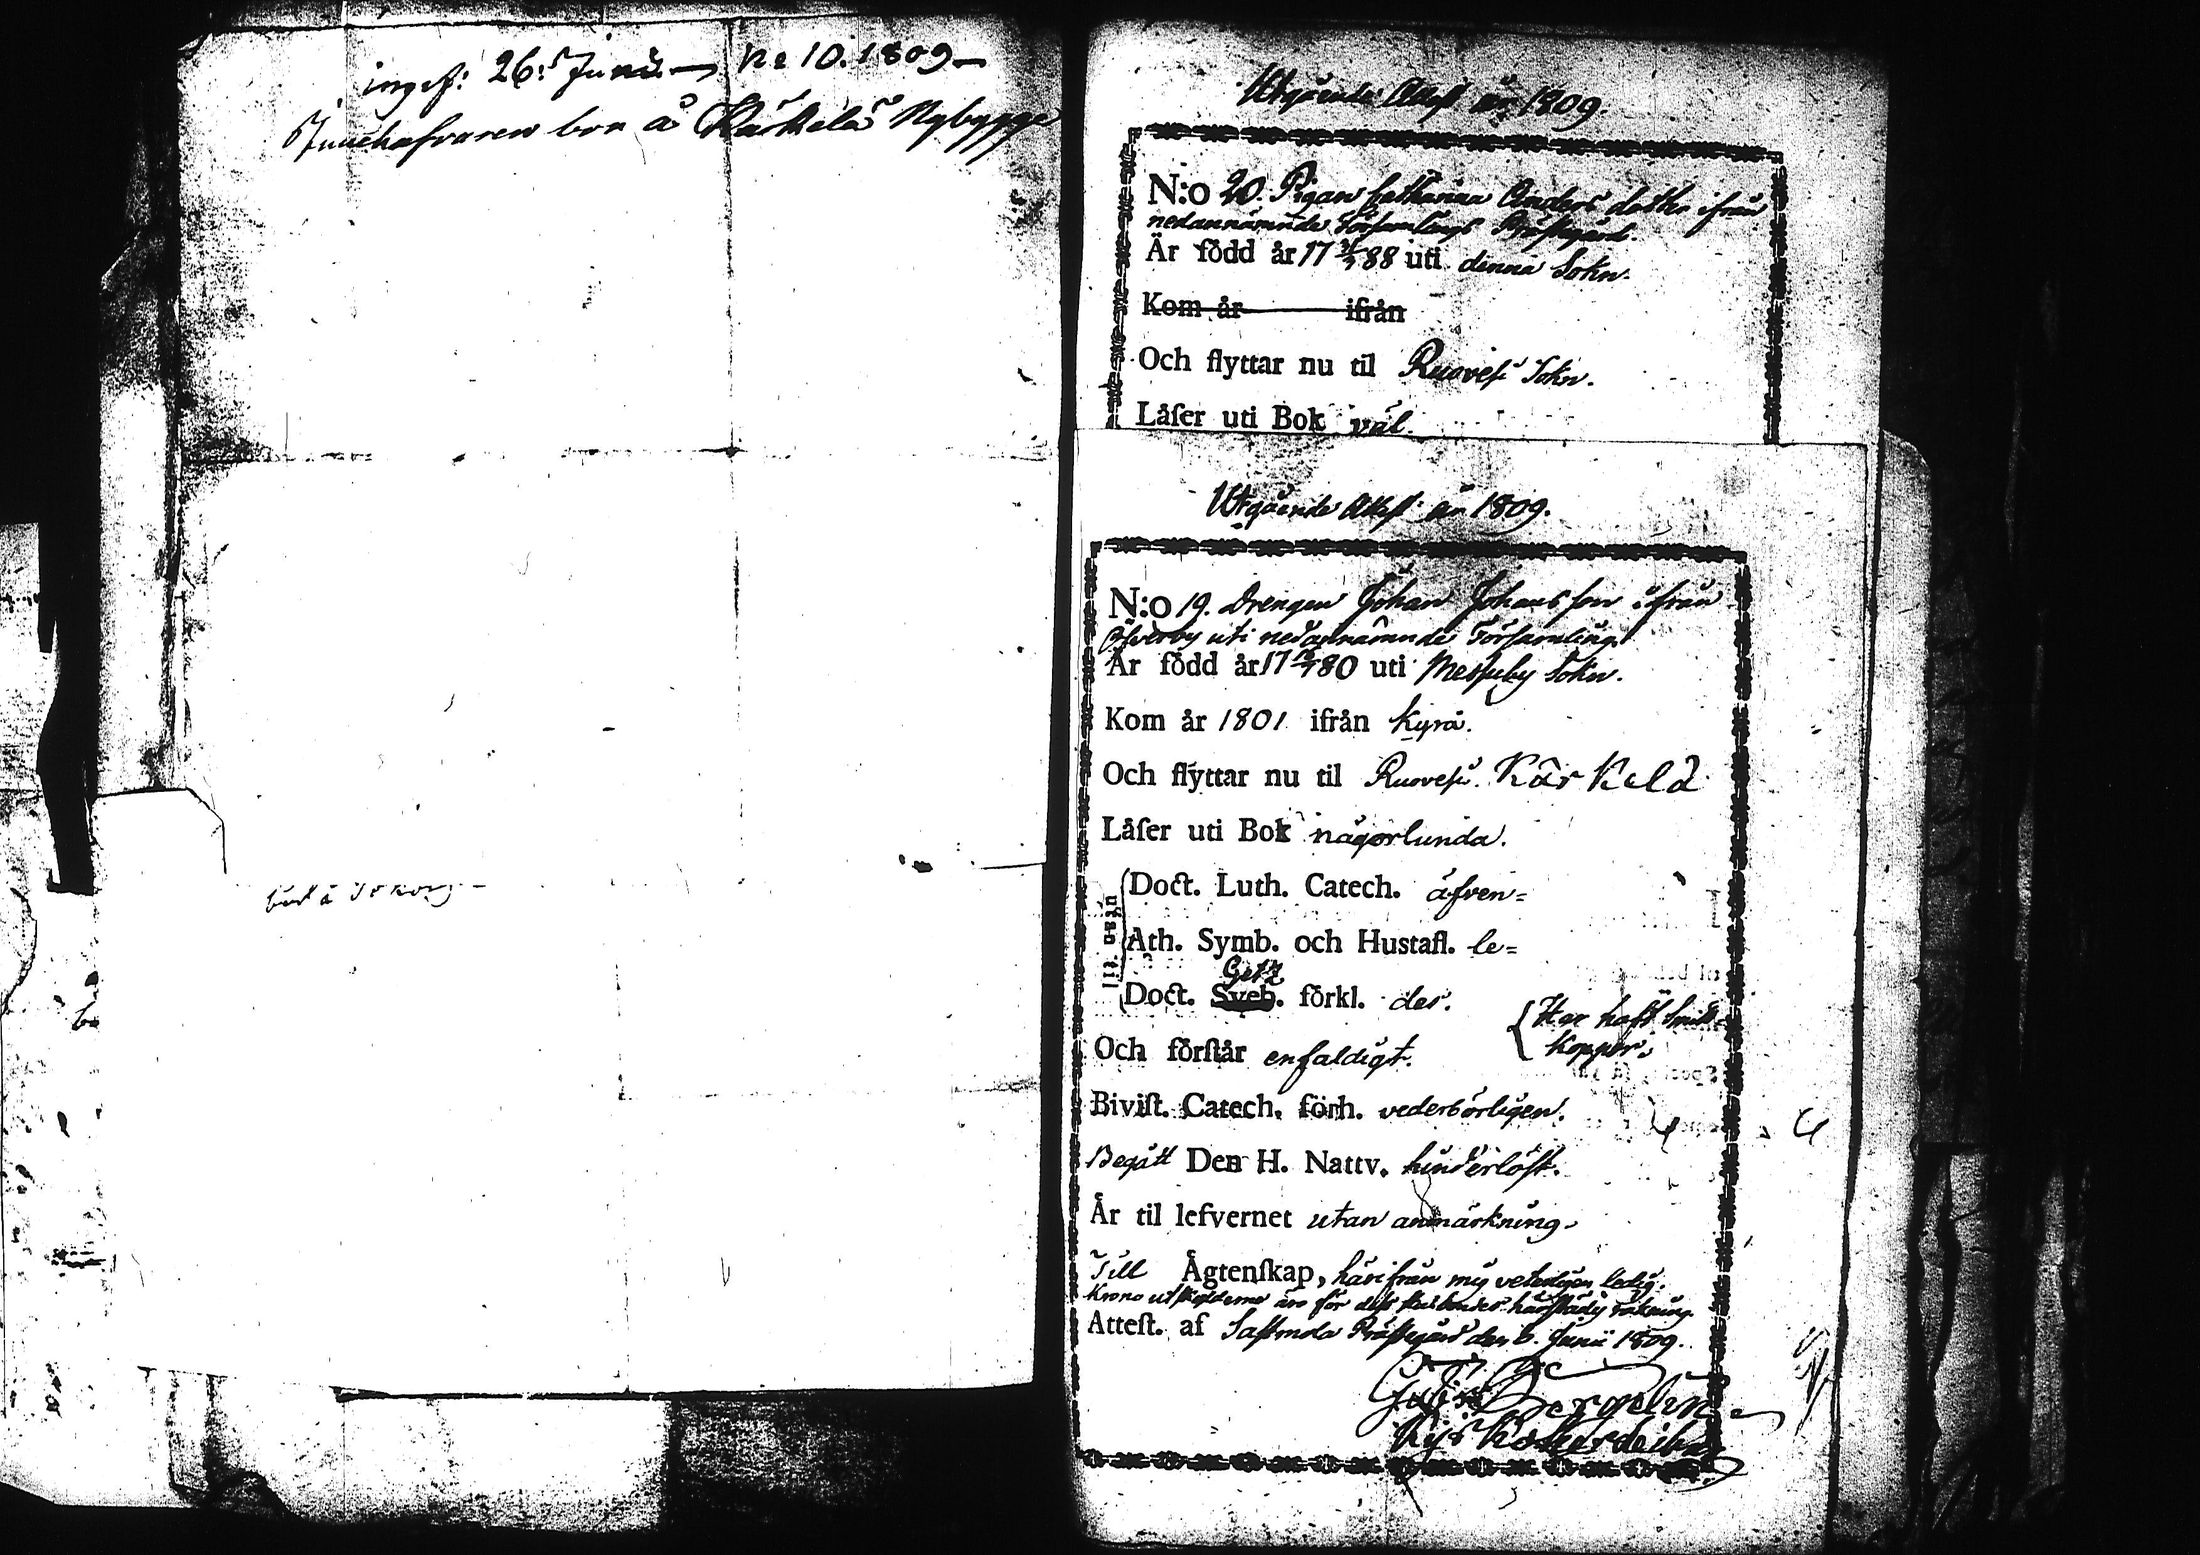 ingif: 26: Junii — No 10. 1809 —
Innehafvaren bor å Kärkelä Nybygge
bor å
Utgående Attest år 1809.
N:o 20. Pigan Catharina Anders dotter ifrån
nedannämnde Församlings Prästegård.
Är född år 17 88 uti denna Sokn.
Kom år ifrån
Och flyttar nu til Ruovesi Sokn.
Låſer uti Bok väl.
Utgående Attest år 1809.
N:o 19. Drengen Johan Johansson ifrån
Öfverby uti nedannämnde Församling.
Är född år 17 80 uti Messuby Sokn.
Kom år 1801 ifrån Kyro.
Och flyttar nu til Ruovesi. Kärkelä
Låſer uti Bok någorlunda.
utan til
Doct. Luth. Catech. äfven=
Ath. Symb. och Hustafl. le=
Getz
Doct. Sveb. förkl. des.
Har haft Smitt-
koppor.
Och förſtår enfaldigt.
Biviſt. Catech. förh. vederbörligen.
Begått Den H. Nattv. hinderlöst.
Är til lefvernet utan anmärkning.
Till Ägtenſkap, härifrån mig veterligen ledig.
Krono utskylderne äro för dess husbondes härstädes räkning
Atteſt. af Sastmola Prästegård den 6. Junii 1809.
Bergelin